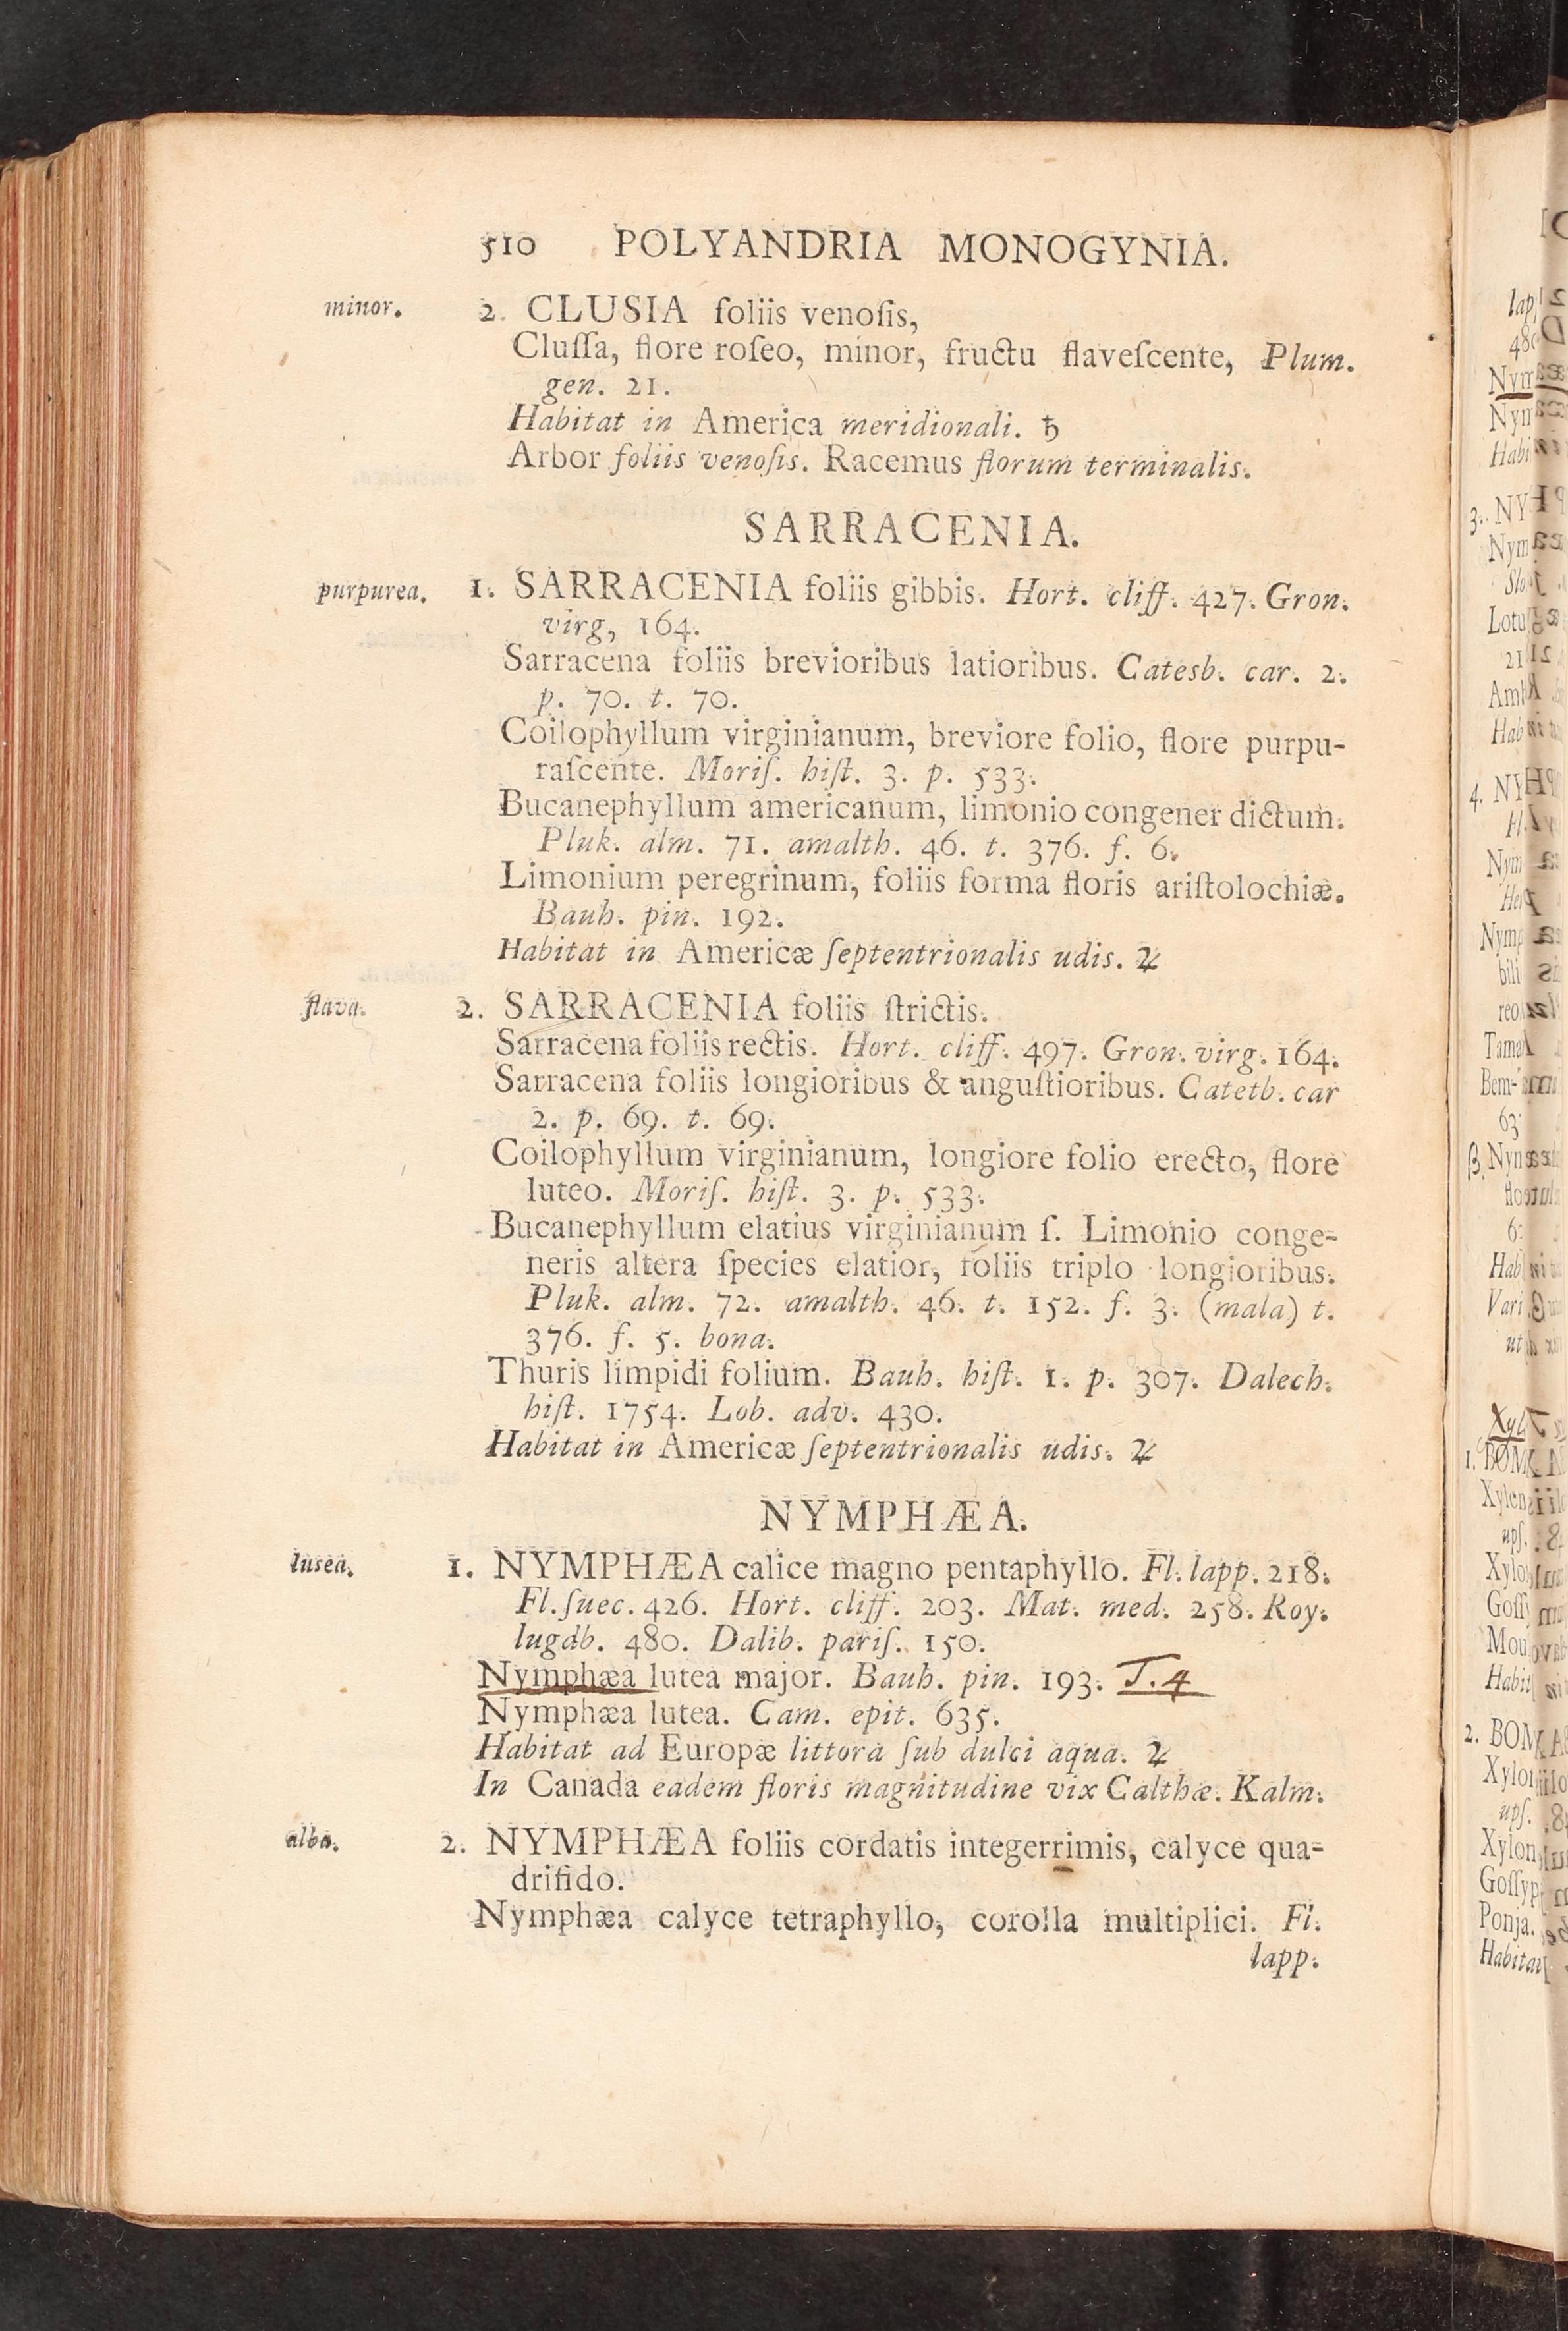 510 POLYANDRIA MONOGYNIA.
minor. 2. CLUSIA foliis venoſis,
Cluſſa, flore roſeo, minor, fructu flaveſcente, Plum.
gen. 21.
Habitat in America meridionali. ♄
Arbor foliis venoſis. Racemus florum terminalis.
SARRACENIA.
purpurea. 1. SARRACENIA foliis gibbis. Hort. cliff. 427. Gron.
virg, 164.
Sarracena foliis brevioribus latioribus. Catesb. car. 2.
p. 70. t. 70.
Coilophyllum virginianum, breviore folio, flore purpu-
raſcente. Moriſ. hiſt. 3. p. 533.
Bucanephyllum americanum, limonio congener dictum.
Pluk. alm. 71. amalth. 46. t. 376. f. 6.
Limonium peregrinum, foliis forma floris ariſtolochiæ.
Bauh. pin. 192.
Habitat in Americæ ſeptentrionalis udis. ♃
flava. 2. SARRACENIA foliis ſtrictis.
Sarracena foliis rectis. Hort. cliff. 497. Gron. virg. 164.
Sarracena foliis longioribus & anguſtioribus. Catetb. car
2. p. 69. t. 69.
Coilophyllum virginianum, longiore folio erecto, flore
luteo. Moriſ. hiſt. 3. p. 533.
Bucanephyllum elatius virginianum ſ. Limonio conge-
neris altera ſpecies elatior, foliis triplo longioribus.
Pluk. alm. 72. amalth. 46. t. 152. f. 3. (mala) t.
376. f. 5. bona.
Thuris limpidi folium. Bauh. hiſt. 1. p. 307. Dalech.
hiſt. 1754. Lob. adv. 430.
Habitat in Americæ ſeptentrionalis udis. ♃
NYMPHÆA.
lusea. 1. NYMPHÆA calice magno pentaphyllo. Fl. lapp. 218.
Fl. ſuec. 426. Hort. cliff. 203. Mat. med. 258. Roy.
lugdb. 480. Dalib. pariſ. 150.
Nymphæa lutea major. Bauh. pin. 193. T. 4
Nymphæa lutea. Cam. epit. 635.
Habitat ad Europæ littora ſub dulci aqua. ♃
In Canada eadem floris magnitudine vix Calthæ. Kalm.
alba. 2. NYMPHÆA foliis cordatis integerrimis, calyce qua-
drifido.
Nymphæa calyce tetraphyllo, corolla multiplici. Fl.
lapp.